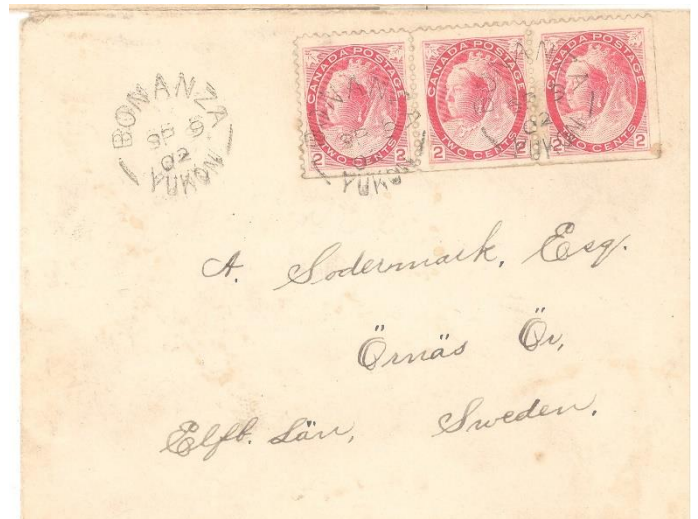 BONANZA
SP 9
02
YUKON
CANADA POSTAGE
2 TWO CENTS 2
CANADA POSTAGE
2 TWO CENTS 2
CANADA POSTAGE
2 TWO CENTS 2
A. Sodermark, Esq.
Örnäs Ör,
Elfb. Län, Sweden.